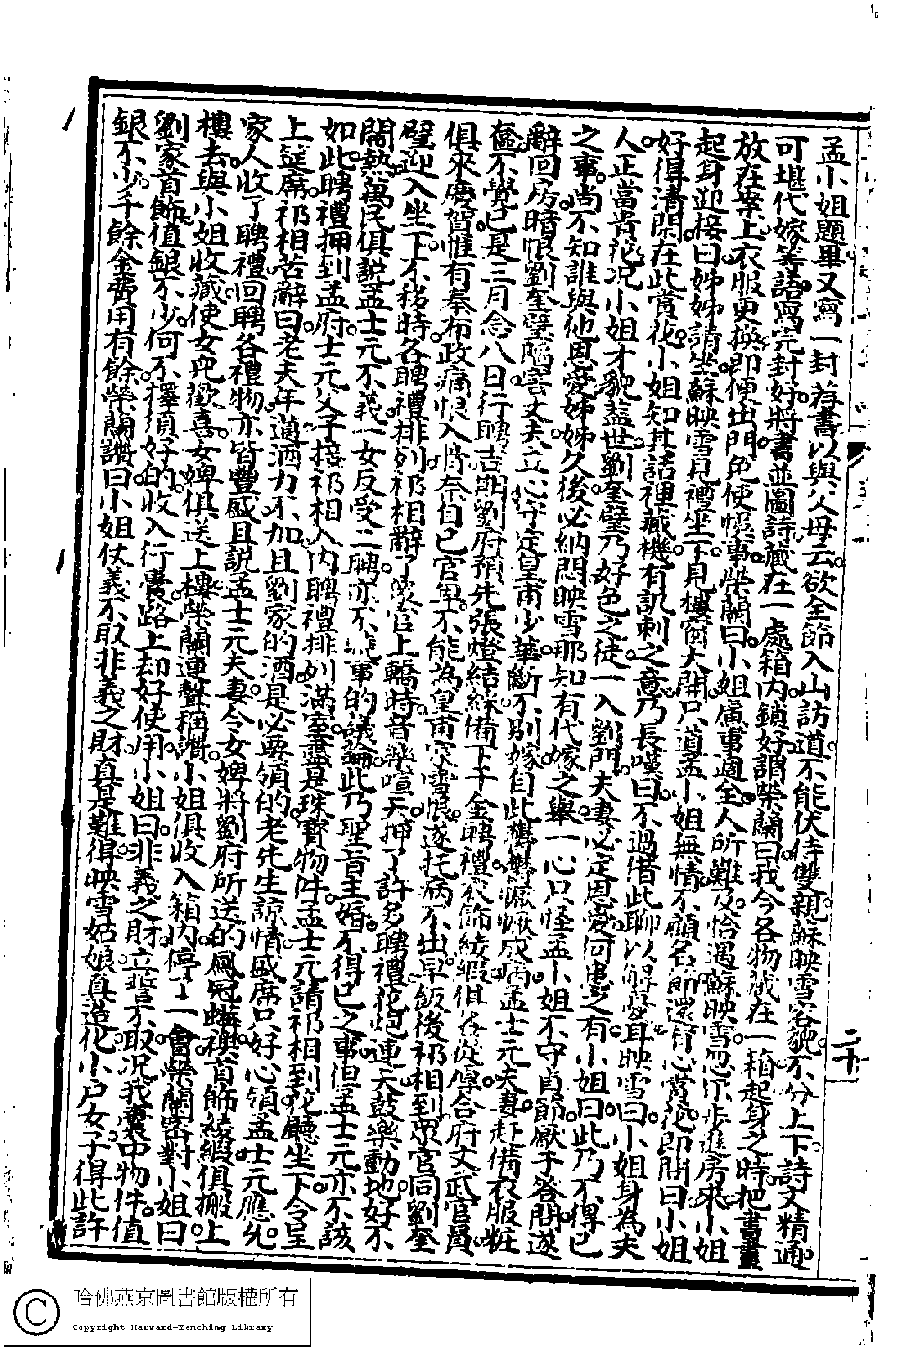 孟小姐題畢又寫一封荐書以與父母云欲全節入山訪道不能伏侍雙親蘇映雪容貌不分上下詩文精通
可堪代嫁等語寫完封好將書並圖詩藏在一處箱內鎖好謂榮蘭曰我今各物藏在一箱起身之時把書畫
放在案上衣服更換即便出門免使悞事榮蘭曰小姐廣事週全人所難及恰遇蘇映雪忍不步進房來小姐
起身迎接曰姊姊請坐蘇映雪見禮坐下見樓窗大開只道孟小姐無情不顧名節還有心賞花即問曰小姐
好得清閑在此賞花小姐知其話裡藏機有訊刺之意乃長嘆曰不過借此聊以解憂耳映雪曰小姐身為夫
人正當賞花况小姐才貌蓋世劉奎璧乃好色之徒一入劉門夫妻必定恩愛何患之有小姐曰此乃不得已
之事尚不知誰與他恩愛姊姊久後必納悶映雪那知有代嫁之舉一心只怪孟小姐不守貞節厭予答問遂
辭回房暗恨劉奎璧隔害丈夫立心守定皇甫少華斷不別嫁自此懨懨懨懨成病孟士元夫妻赶俻衣服粧
奩不覺已是三月念八日行聘吉期劉府預先張燈結綵俻下千金聘禮衣飾綾緞俱各從厚合府文武官員
俱來慶賀惟有秦布政痛恨入骨奈自己官卑不能為皇甫家雪恨遂托病不出早飯後祁相到眾官同劉奎
璧迎入坐下不移時各聘禮排列祁相辭了眾官上轎時音樂喧天押了許多聘禮花炮連天鼓樂動地好不
鬧熱萬民俱說孟士元不義一女反受二聘亦有不平的議論此乃聖旨主婚不得已之事但孟士元亦不該
如此聘禮押到孟府士元父子接祁相入內聘禮排列滿室盡是珠寶物件孟士元請祁相到花廳坐下令呈
上筵席祁相苦辭曰老夫年邁酒力不加且劉家的酒是必要領的老先生諒情盛席只好心領孟士元應允
家人收了聘禮回聘各禮物亦皆豐盛且説孟士元夫妻令女婢將劉府所送的鳳冠蟒襖首飾綾緞俱搬上
樓去與小姐收藏使女兒歡喜女婢俱送上樓榮蘭連聲稱讚小姐俱收入箱內停了一會榮蘭密對小姐曰
劉家首飾值銀不少何不擇須好的收入行囊路上却好使用小姐曰非義之財立誓不取况我囊中物件值
銀不少千餘金費用有餘榮蘭讚曰小姐仗義不取非義之財真是難得映雪姑娘真造化小戶女子得此許
二十
哈佛燕京圖書館版權所有
Copyright Harvard-Yenching Library